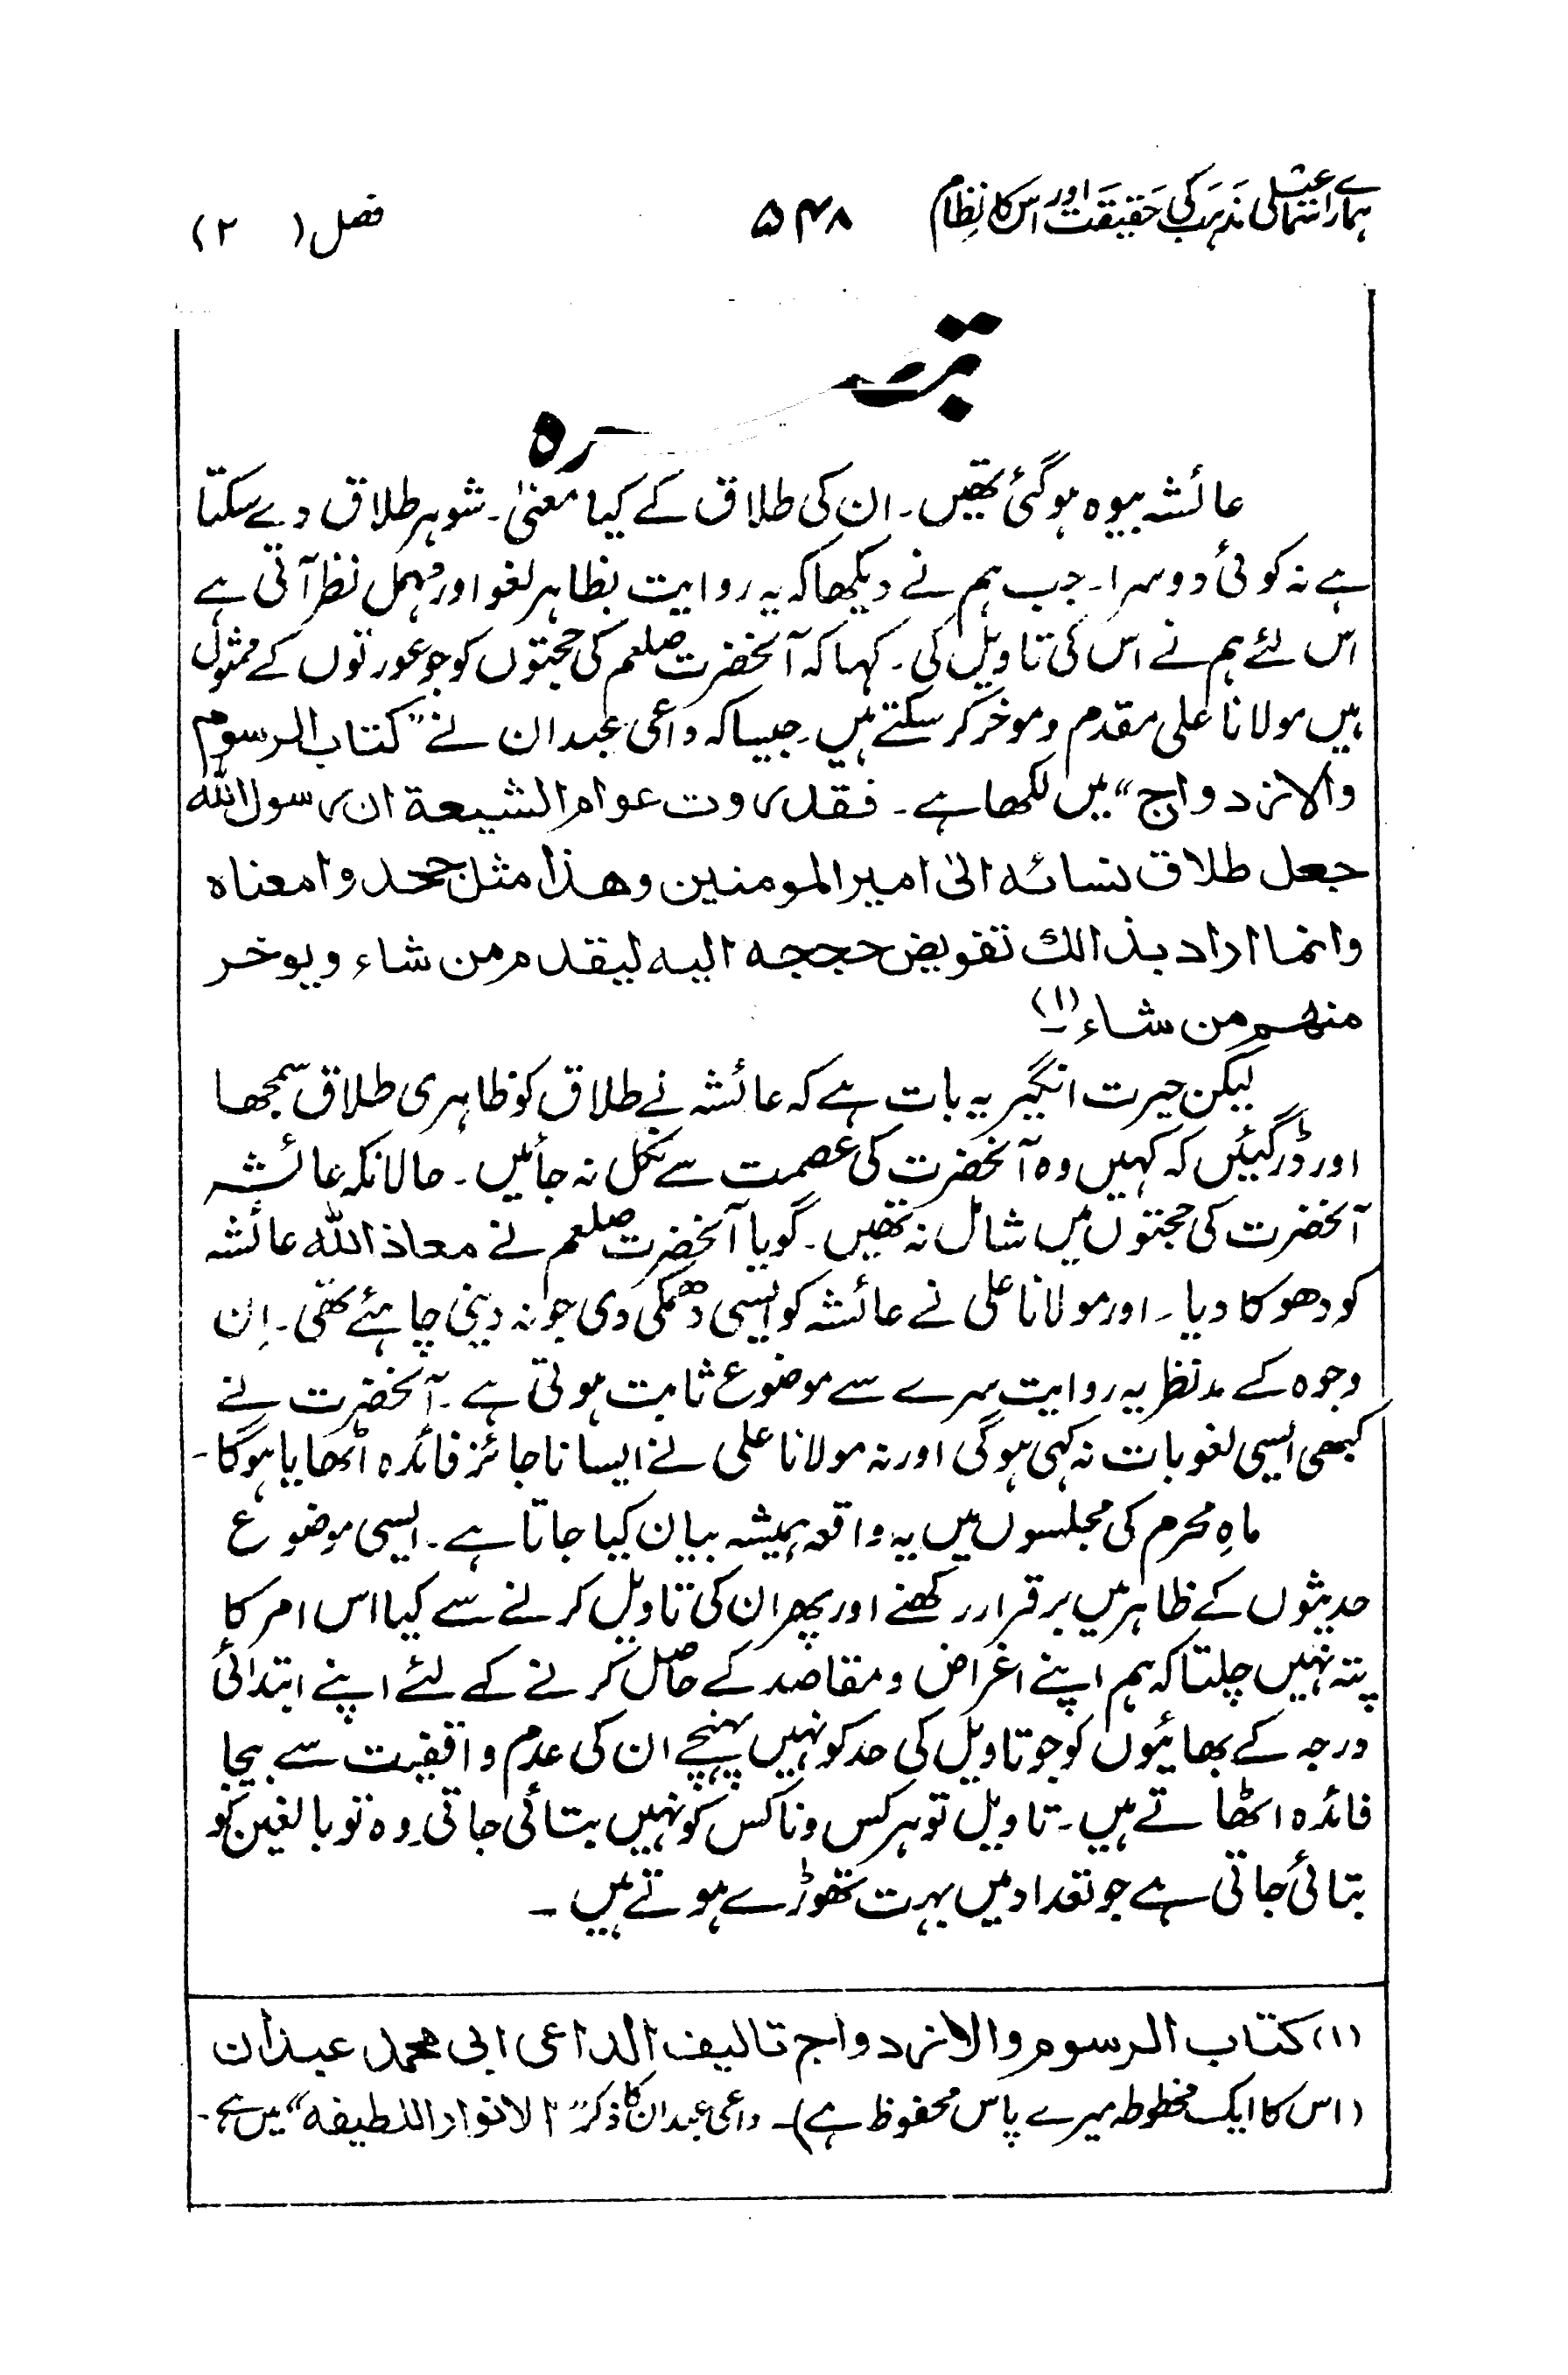 ہمارے اسماعیلی مذہب کی حقیقت اور اس کا نظام ۵۴۸ فصل (۲)
تبصرہ
عائشہ بیوہ ہو گئی تھیں۔ ان کی طلاق کے کیا معنیٰ۔ شوہر طلاق دے سکتا
ہے نہ کوئی دوسرا۔ جب ہم نے دیکھا کہ یہ روایت بظاہر لغو اور مہمل نظر آتی ہے
اس لئے ہم نے اس کی تاویل کی۔ کہا کہ آنحضرت صلعم کی حجتوں کو جو عورتوں کے ممثول
ہیں مولانا علی مقدم و موخر کر سکتے ہیں۔ جیسا کہ داعی عبدان نے "کتاب الرسوم
والازدواج" میں لکھا ہے۔ فقد روت عوام الشیعة ان رسول اللہ
جعل طلاق نسائہ الیٰ امیر المومنین وھذا مثل جحدوا معناہ
وانما اراد بذالک تفویض حججہ الیہ لیقدم من شاء ویوخر
منھم من شاء (۱)۔
لیکن حیرت انگیز یہ بات ہے کہ عائشہ نے طلاق کو ظاہری طلاق سمجھا
اور ڈر گئیں کہ کہیں وہ آنحضرت کی عصمت سے نکل نہ جائیں۔ حالانکہ عائشہ
آنحضرت کی حجتوں میں شامل نہ تھیں۔ گویا آنحضرت صلعم نے معاذ اللہ عائشہ
کو دھوکا دیا۔ اور مولانا علی نے عائشہ کو ایسی دھمکی دی جو نہ دینی چاہئے تھی۔ اِن
وجوہ کے مد نظر یہ روایت سرے سے موضوع ثابت ہوتی ہے۔ آنحضرت نے
کبھی ایسی لغو بات نہ کہی ہوگی اور نہ مولانا علی نے ایسا ناجائز فائدہ اٹھایا ہوگا۔
ماہِ محرم کی مجلسوں میں یہ واقعہ ہمیشہ بیان کیا جاتا ہے۔ ایسی موضوع
حدیثوں کے ظاہر میں برقرار رکھنے اور پھر ان کی تاویل کرنے سے کیا اس امر کا
پتہ نہیں چلتا کہ ہم اپنے اغراض و مقاصد کے حاصل کرنے کے لئے اپنے ابتدائی
درجہ کے بھائیوں کو جو تاویل کی حد کو نہیں پہنچے ان کی عدم واقفیت سے بیجا
فائدہ اٹھاتے ہیں۔ تاویل تو ہر کس و ناکس کو نہیں بتائی جاتی۔ وہ تو بالغین کو
بتائی جاتی ہے جو تعداد میں بہت تھوڑے ہوتے ہیں۔
(۱) کتاب الرسوم والازدواج تالیف الداعی ابی محمد عبدان
(اس کا ایک مخطوطہ میرے پاس محفوظ ہے)۔ داعی عبدان کا ذکر "الانوار اللطیفہ" میں ہے۔